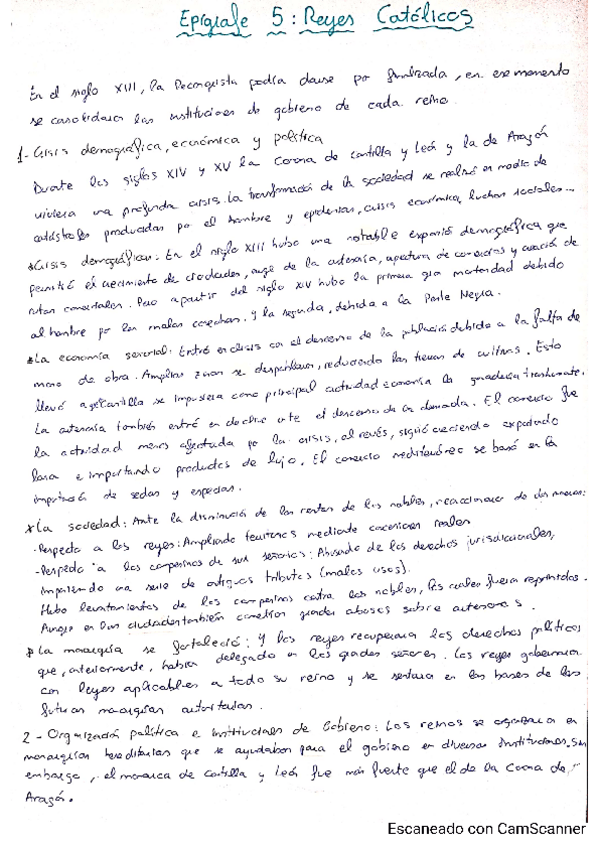 Epígrafe 5: Reyes Católicos
En el siglo XIII, la Reconquista podía darse por finalizada, en ese momento
se consolidaron las instituciones de gobierno de cada reino.
1- Crisis demográfica, económica y política
Durante los siglos XIV y XV la Corona de Castilla y León y la de Aragón
vivieron una profunda crisis. La transformación de la sociedad se realizó en medio de
catástrofes producidas por el hambre y epidemias, crisis económica, luchas sociales...
*Crisis demográfica: En el siglo XIII hubo una notable expansión demográfica que
permitió el crecimiento de ciudades, auge de la artesanía, apertura de comercios y creación de
rutas comerciales. Pero a partir del siglo XIV hubo la primera gran mortandad debido
al hambre por las malas cosechas. y la segunda, debida a la Peste Negra.
*La economía señorial: Entró en crisis con el descenso de la población debido a la falta de
mano de obra. Amplias zonas se despoblaron, reduciendo las tierras de cultivos. Esto
llevó a q Castilla se impusiera como principal actividad economía la ganadería trashumante.
La artesanía también entró en declive ante el descenso de la demanda. El comercio fue
la actividad menos afectada por la crisis, al revés, siguió creciendo exportando
lana e importando productos de lujo. El comercio mediterráneo se basó en la
importación de sedas y especias.
*La sociedad: Ante la disminución de las rentas de los nobles, reaccionaron de dos maneras:
-Respecto a los reyes: Ampliando territorios mediante concesiones reales
-Respecto a los campesinos de sus señoríos: Abusando de los derechos jurisdiccionales,
imponiendo una serie de antiguos tributos (malos usos).
Hubo levantamientos de los campesinos contra los nobles, los cuales fueron reprimidos.
Aunque en las ciudades también cometían grandes abusos sobre artesanos.
*La monarquía se fortaleció: y los reyes recuperaron los derechos políticos
que, anteriormente, habían delegado en los grandes señores. Los reyes gobernaron
con leyes aplicables a todo su reino y se sentaron en las bases de las
futuras monarquías autoritarias.
2- Organización política e instituciones de Gobierno: Los reinos se organizaron en
monarquías hereditarias que se ayudaban para el gobierno en diversas instituciones. Sin
embargo, el monarca de Castilla y León fue más fuerte que el de la Corona de
Aragón.
Escaneado con CamScanner